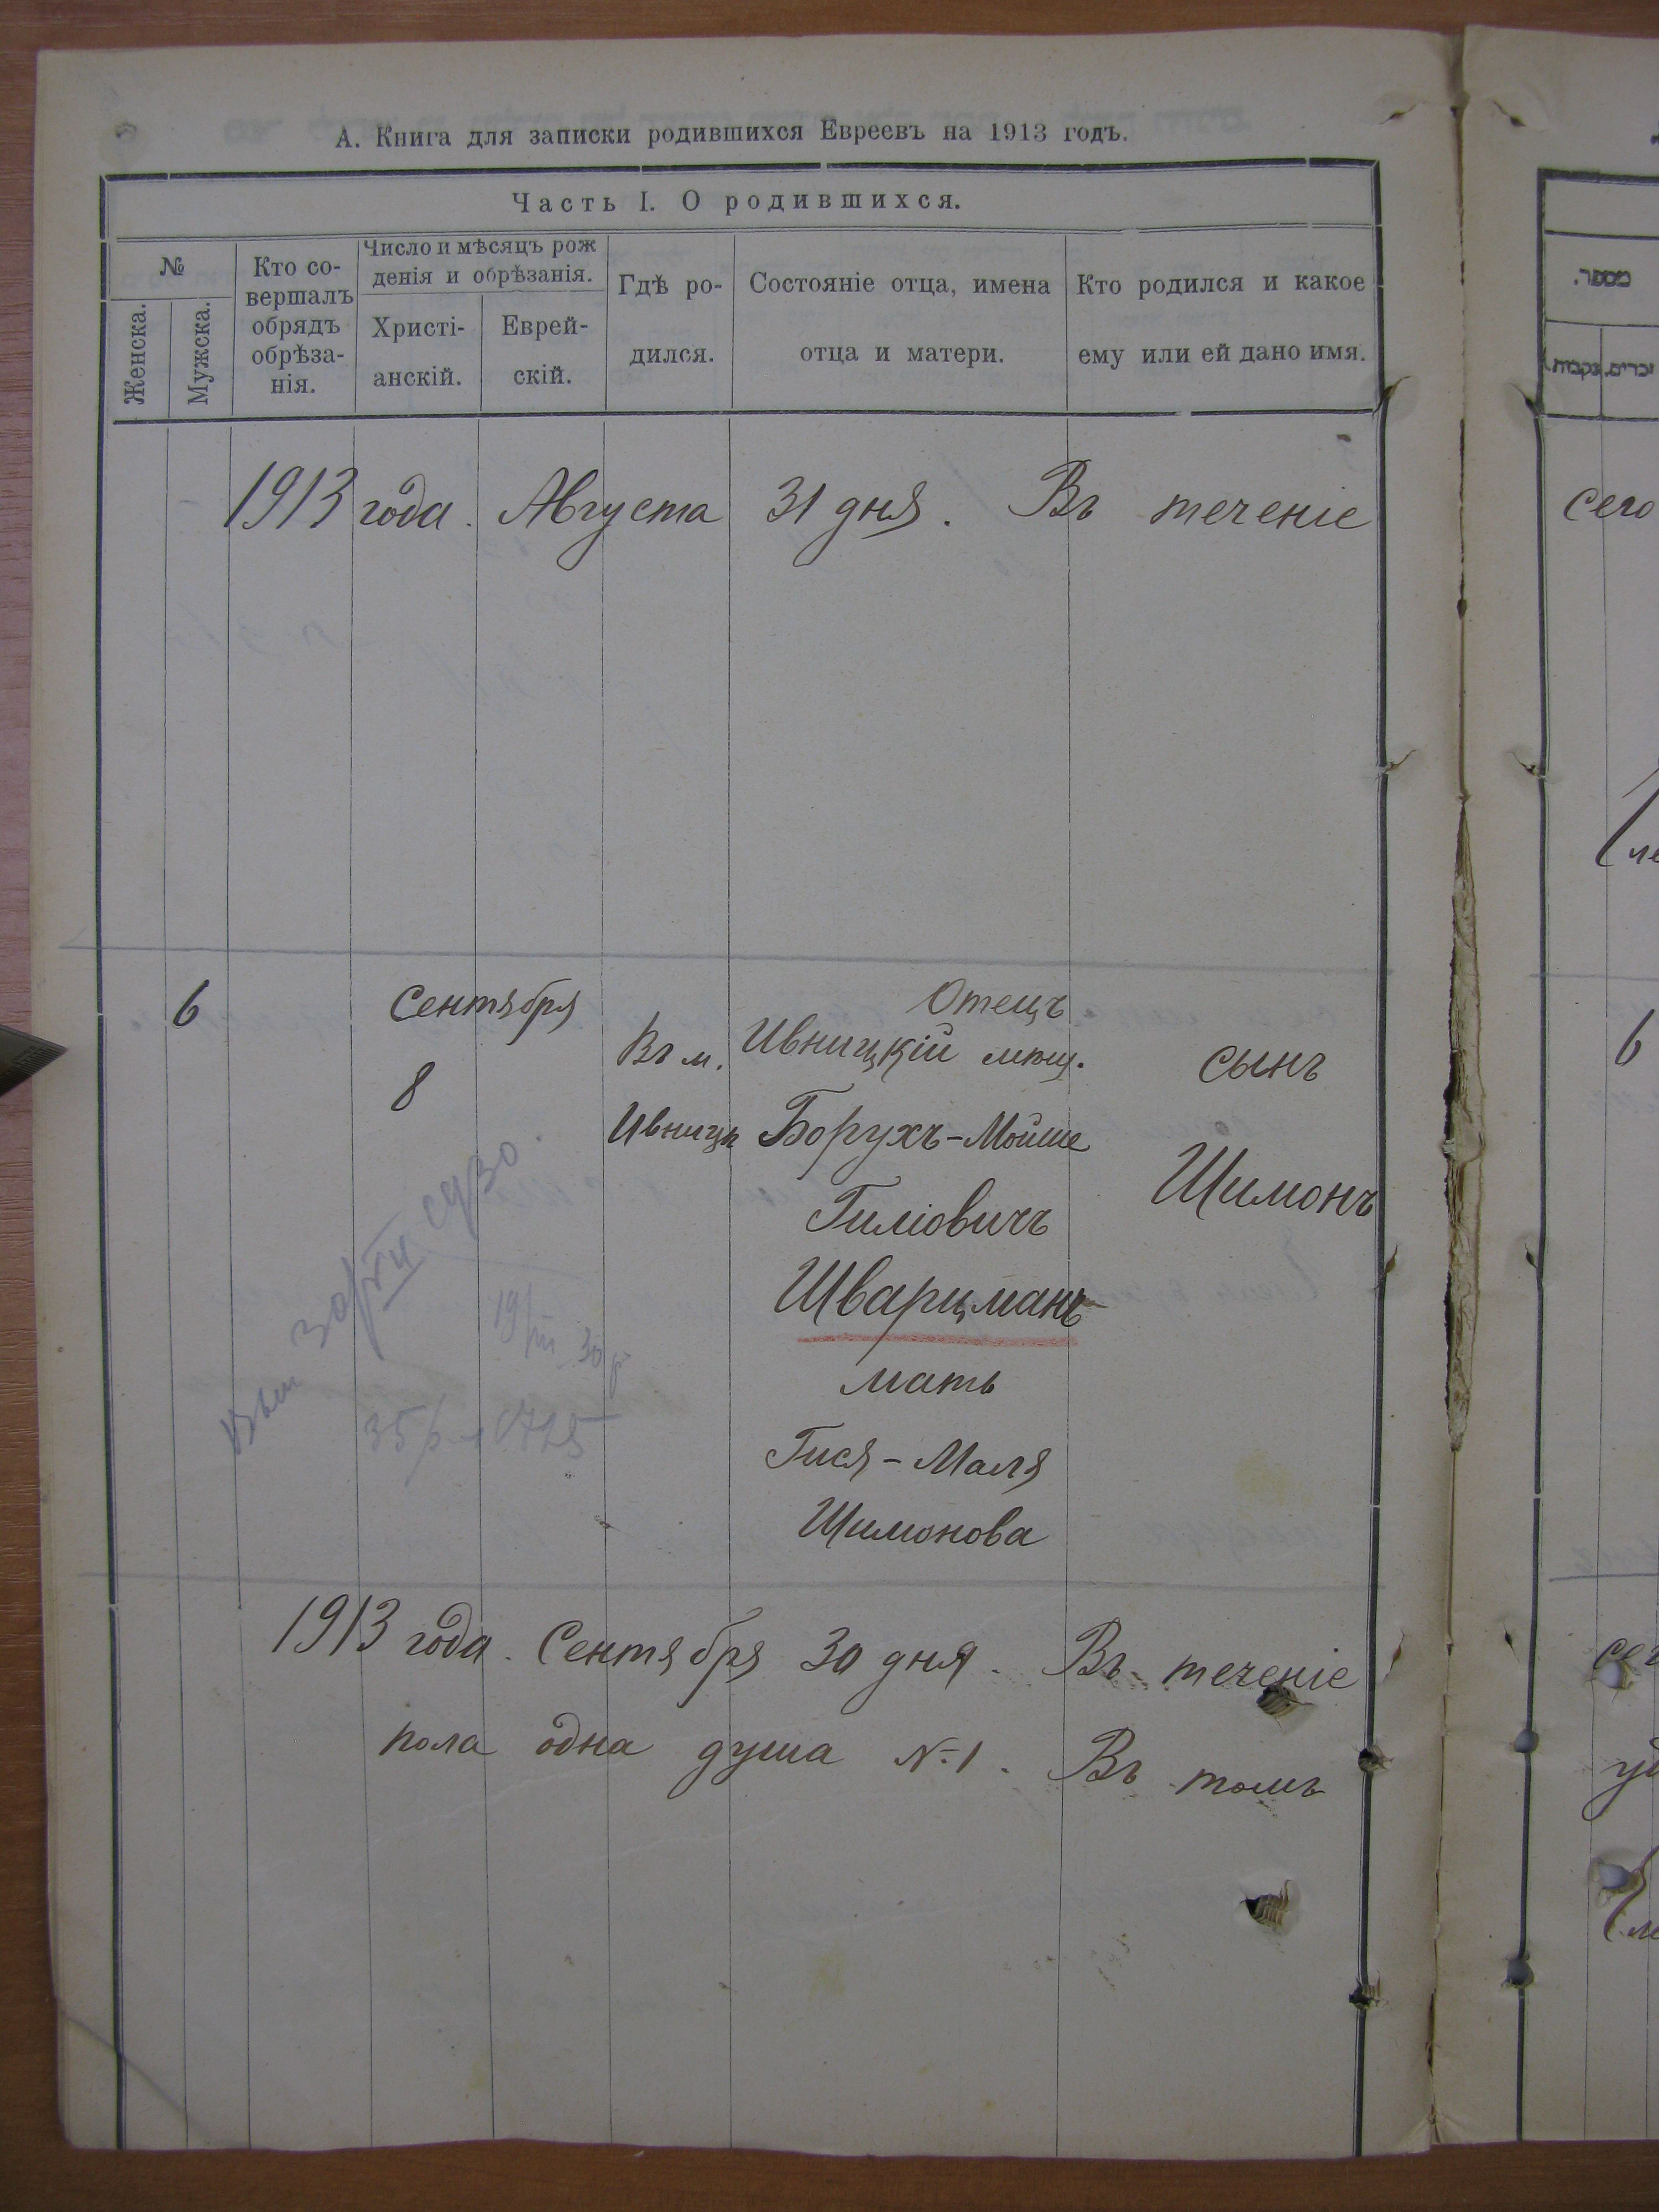 А. Книга для записки родившихся Евреевъ на 1913 годъ.
Часть I. О родившихся.
№
Женска.
Мужска.
Кто со-
вершалъ
обрядъ
обрѣза-
нія.
Число и мѣсяцъ рож
денія и обрѣзанія.
Христі-
анскій.
Еврей-
скій.
Гдѣ ро-
дился.
Состояніе отца, имена
отца и матери.
Кто родился и какое
ему или ей дано имя.
1913 года. Августа 31 дня. Въ теченіе
6
Сентября
8
Въ м.
Ивницѣ
Отецъ
Ивницкій мѣщ.
Борухъ-Мойше
Гиліовичъ
Шварцманъ
мать
Гися-Маля
Шимонова
сынъ
Шимонъ
19/III 30 р
1913 года. Сентября 30 дня. Въ теченіе
пола одна душа №1. Въ томъ
מספר.
נקבות
זכרים.
сего
6